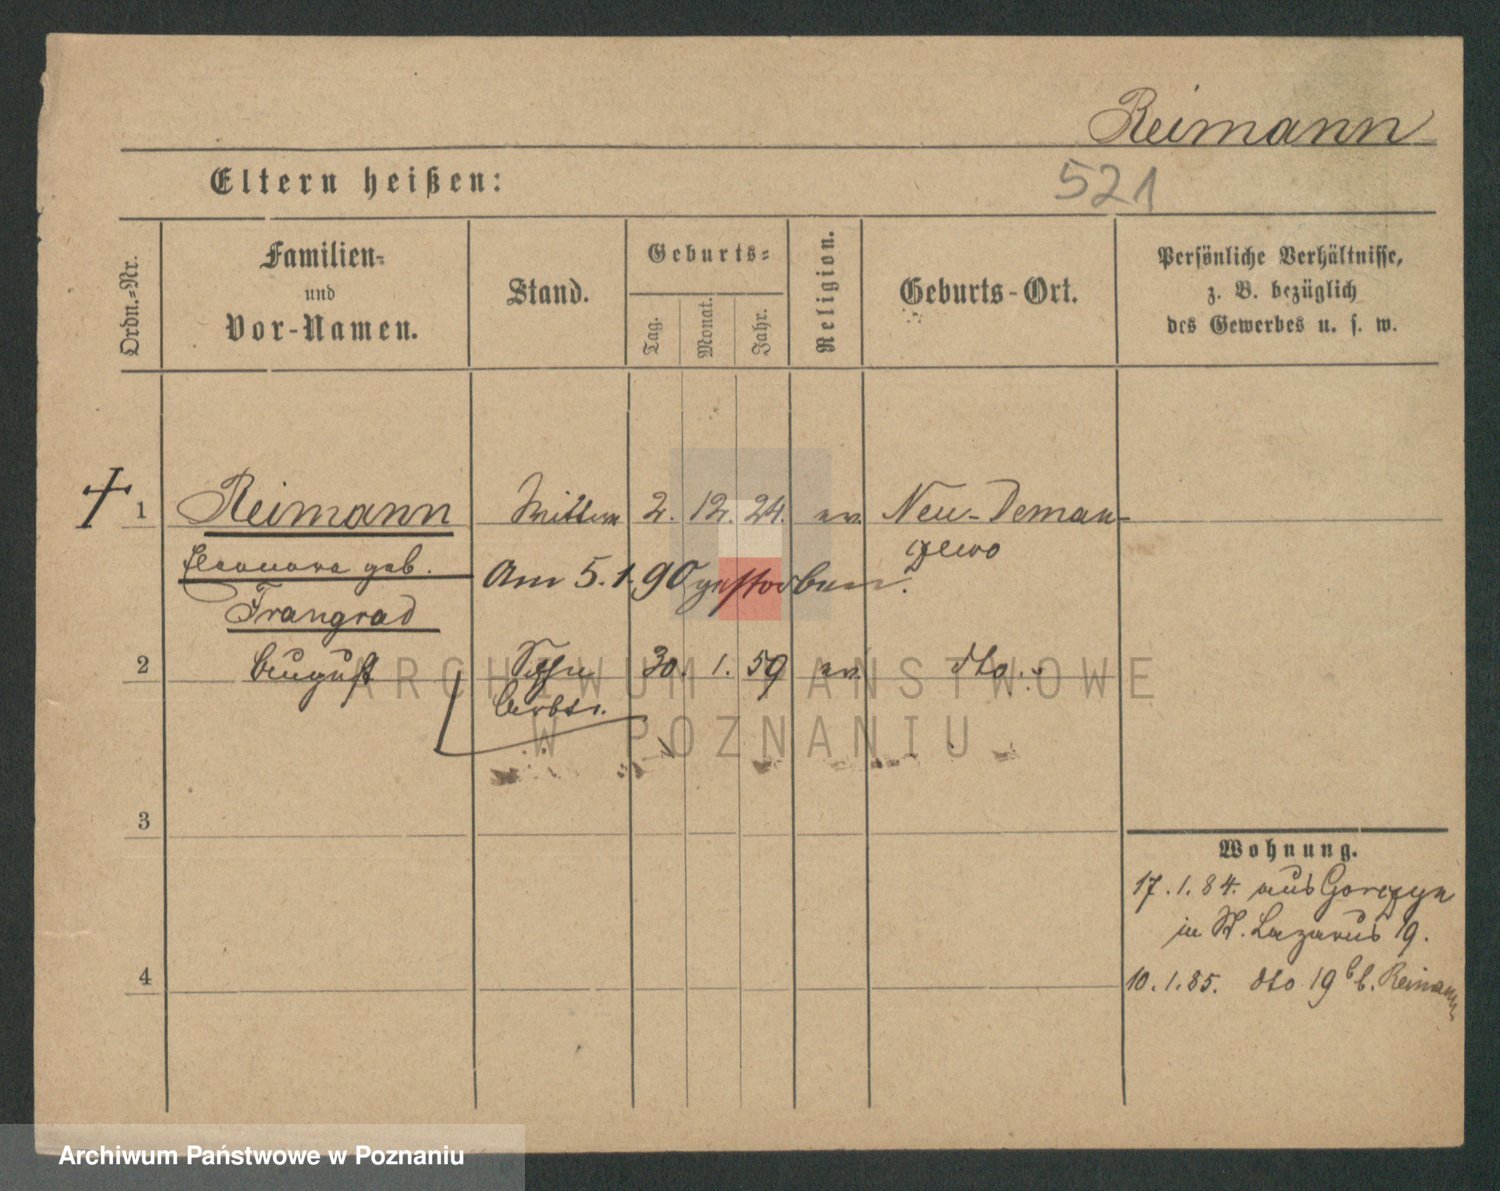 Reimann
Eltern heißen:
521
Ordn.-Nr.
Familien-
und
Vor-Namen.
Stand.
Geburts-
Tag.
Monat.
Jahr.
Religion.
Geburts-Ort.
Persönliche Verhältnisse,
z. B. bezüglich
des Gewerbes u. s. w.
1 Reimann 2. 12. 24. ev. Neu-Deman-
Eleonora geb. zewo
Am 5.1.90 gestorben.
Trangrad
2 August Sohn 30. 1. 59 ev. dto.
Arbtr.
ARCHIWUM PAŃSTWOWE
W POZNANIU
3
Wohnung.
17.1.84. aus Gorczyn
in St. Lazarus 19.
4
10.1.85. dto 19 b b. Reimann
Archiwum Państwowe w Poznaniu